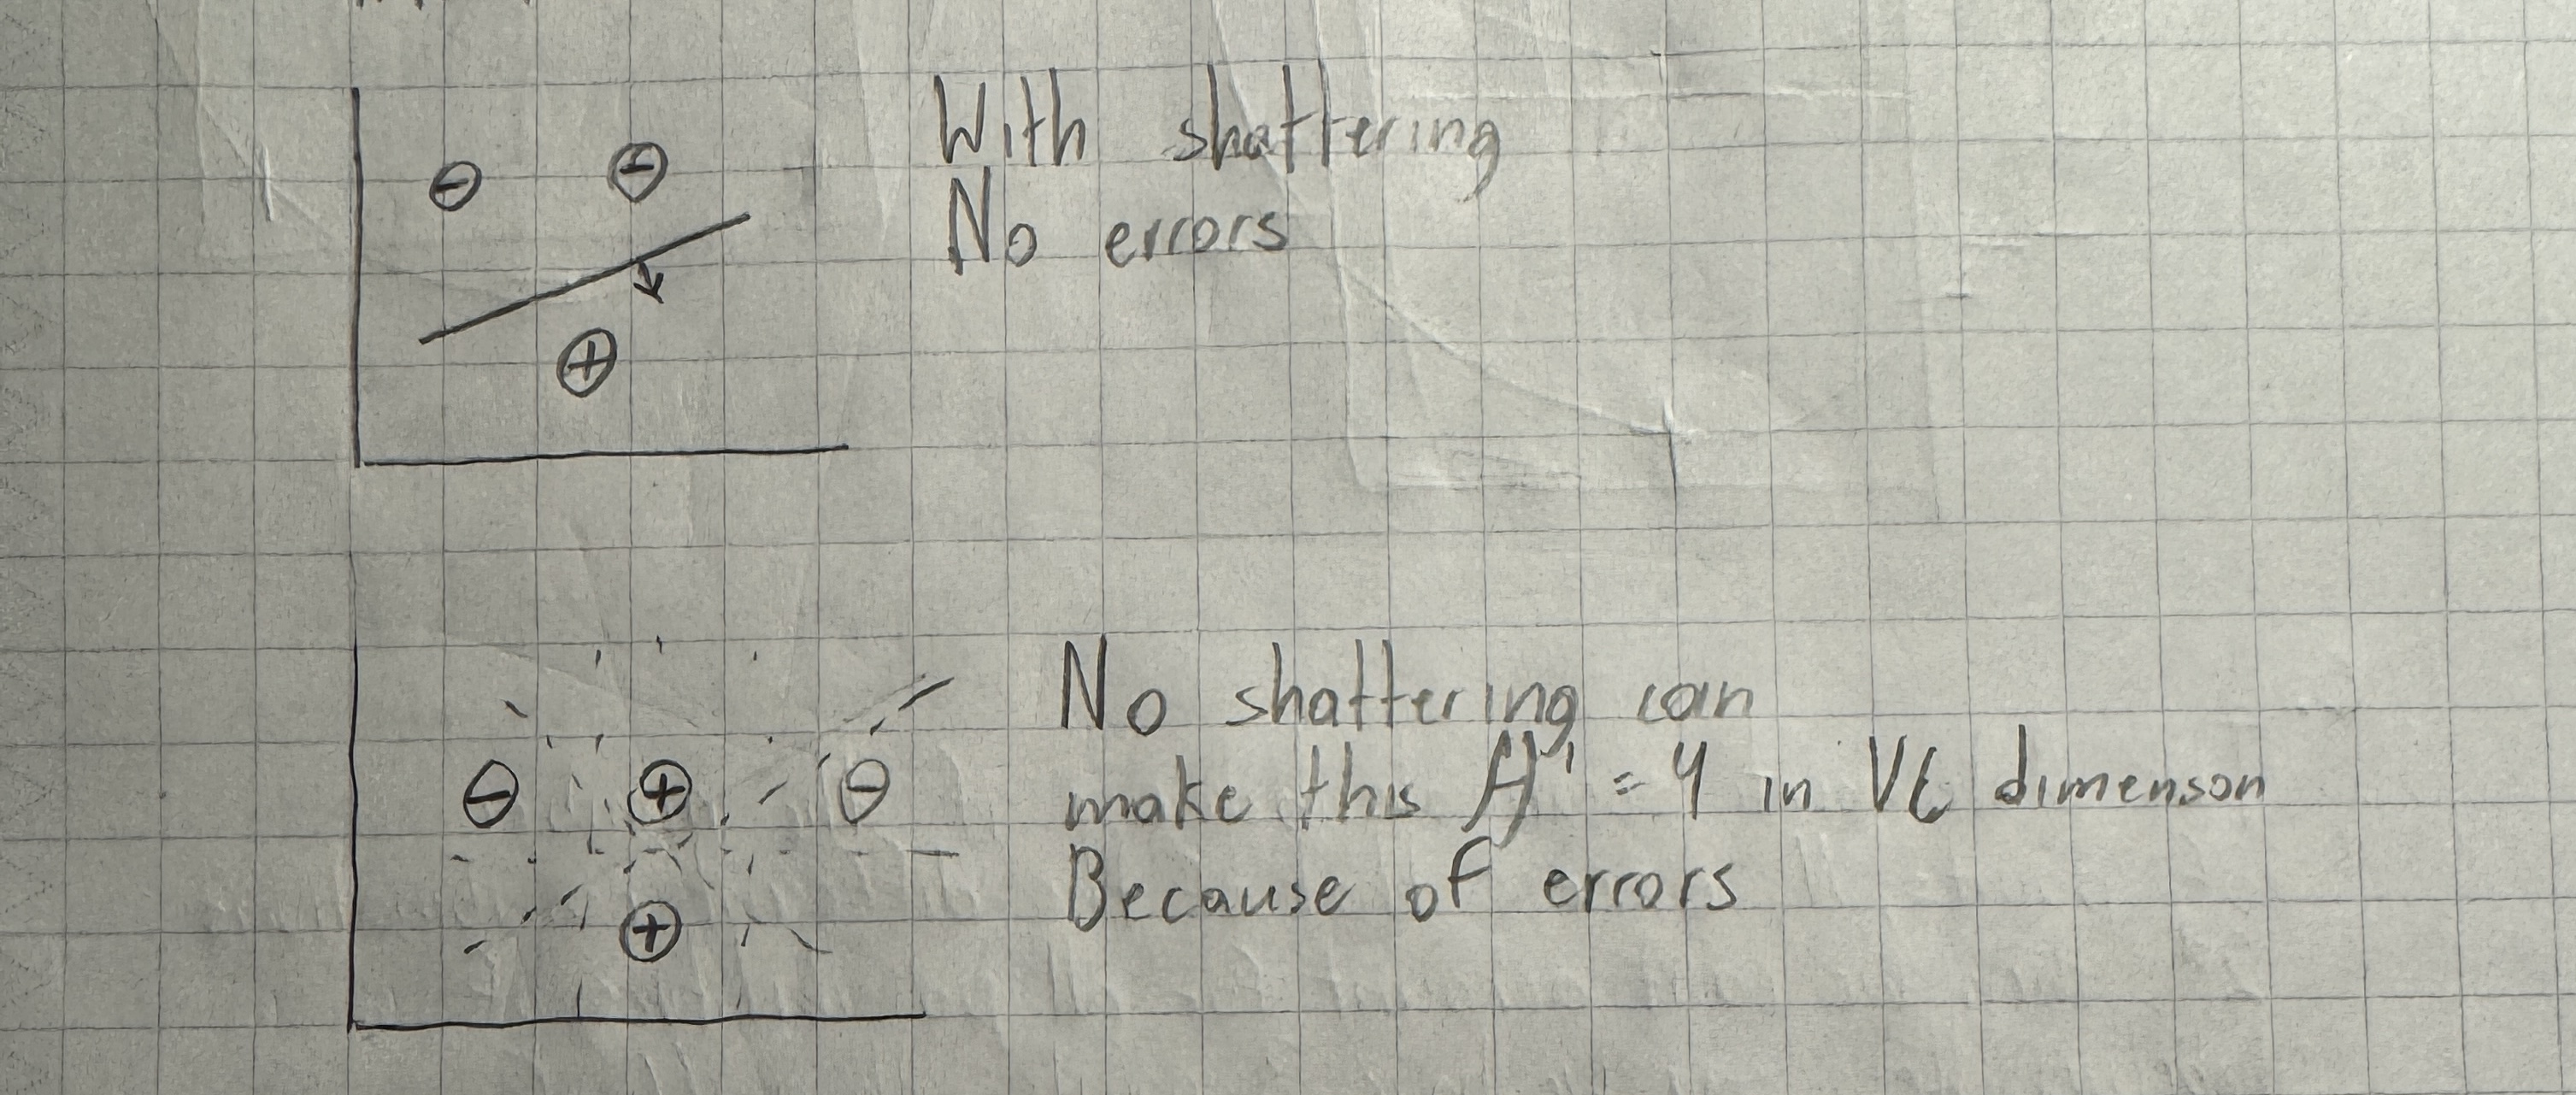 ⊖ ⊖
⊕
With shattering
No errors
⊖ ⊕ ⊖
⊕
No shattering can
make this H' = 4 in VC dimenson
Because of errors